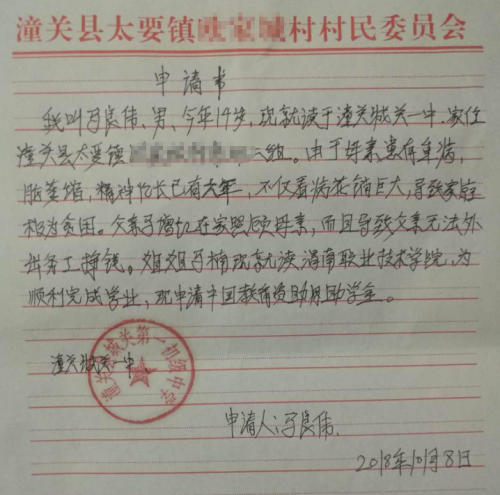 潼关县太要镇村村民委员会
申请书
我叫冯良伟、男、今年14岁,现就读于潼关城关一中。家住
潼关县太要镇二组。由于母亲患有重病,
脑萎缩,精神恍已有六年,不仅看病花销巨大,导致家庭
极为贫困。父亲冯增在家照顾母亲,而且导致父亲无法外
出务工挣钱。姐姐冯楠现就读渭南职业技术学院,为
顺利完成学业,现申请中国教育资助网助学金。
潼关县城关第一初级中学
潼关城关一中
申请人:冯良伟.
2018年10月8日